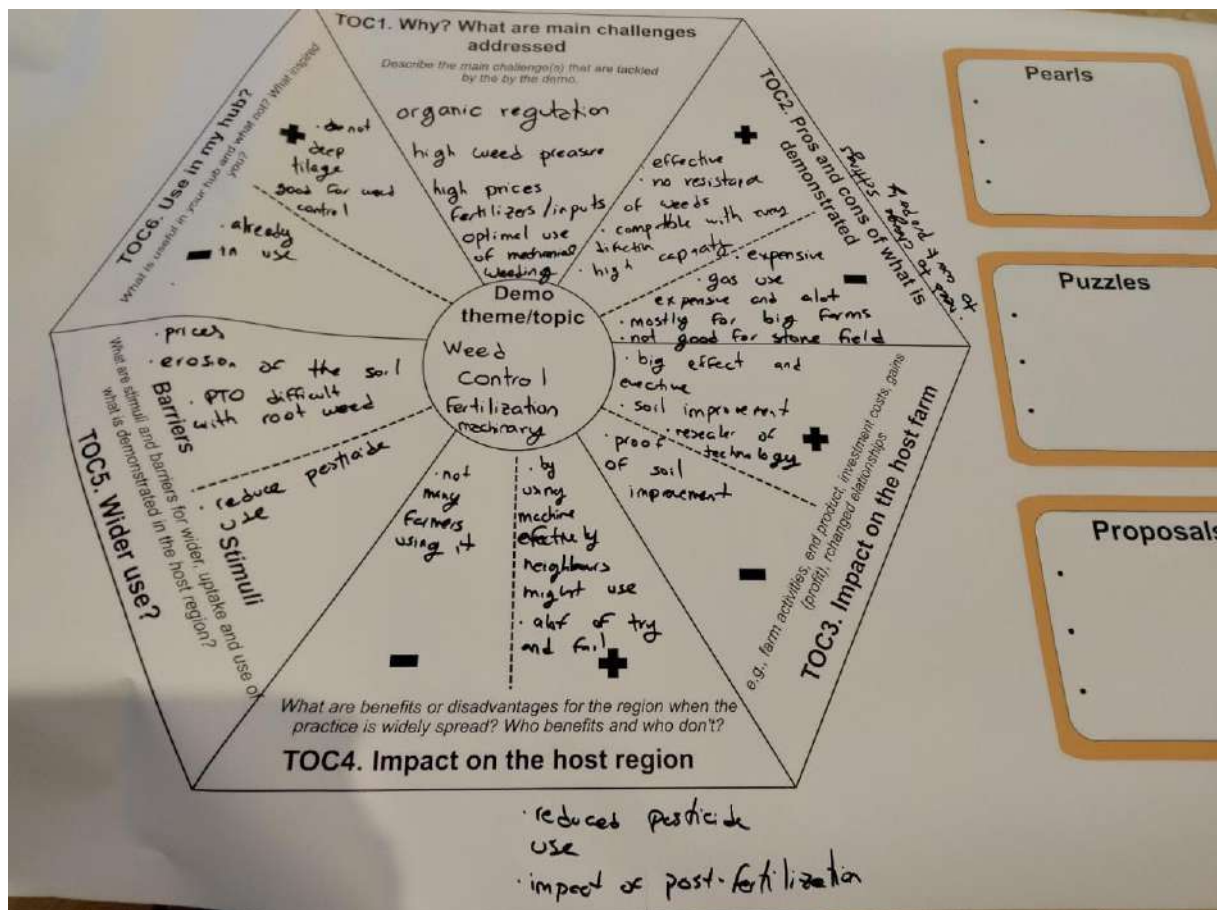 TOC1. Why? What are main challenges
addressed
Describe the main challenge(s) that are tackled
by the by the demo.
organic regulation
high weed preasure
high prices
fertilizers/inputs
optimel use
of mechanical
weeding
TOC2. Pros and cons of what is
demonstrated
+
· effective
· no resistance
of weeds
· compatible with
· high capacity
-
· expensive
· gas use
expensive and alot
· mostly for big farms
· not good for stone field
· need to change settings
TOC3. Impact on the host farm
e.g., farm activities, end product, investment costs, gains
(profit), rchanged elationships
+
· big effect and
· soil improvement
· resealer of
technology
· proof
of soil
improvement
-
TOC4. Impact on the host region
What are benefits or disadvantages for the region when the
practice is widely spread? Who benefits and who don't?
-
· not
many
farmers
using it
+
· by
using
machine
neighbours
might use
· alot of try
and fail
· reduced pesticide
use
· impact of post-fertilization
TOC5. Wider use?
What are stimuli and barriers for wider, uptake and use of
what is demonstrated in the host region?
Barriers
· prices
· erosion of the soil
· PTO difficult
with root weed
Stimuli
· reduce pesticide
use
TOC6. Use in my hub?
What is useful in your hub and what not? What inspired
you?
+
· do not
deep
tilage
good for weed
control
-
· already
in use
Demo
theme/topic
Weed
Control
Fertilization
machinary
Pearls
Puzzles
Proposals